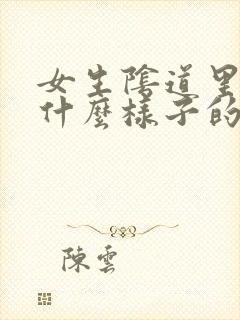 女生陰道里
什麼樣子的
陳雲